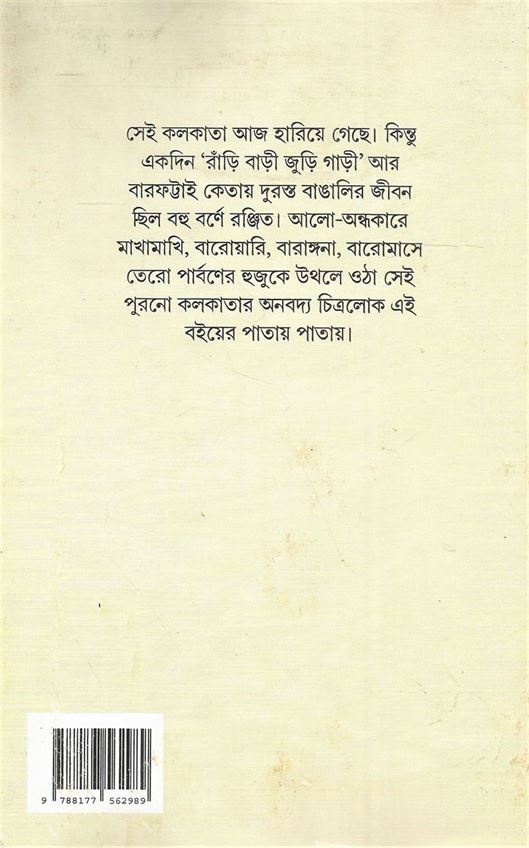 সেই কলকাতা আজ হারিয়ে গেছে। কিন্তু
একদিন ‘রাঁড়ি বাড়ী জুড়ি গাড়ী’ আর
বারফট্টাই কেতায় দুরস্ত বাঙালির জীবন
ছিল বহু বর্ণে রঞ্জিত। আলো-অন্ধকারে
মাখামাখি, বারোয়ারি, বারাঙ্গনা, বারোমাসে
তেরো পার্বণের হুজুকে উথলে ওঠা সেই
পুরনো কলকাতার অনবদ্য চিত্রলোক এই
বইয়ের পাতায় পাতায়।
9 788177 562989